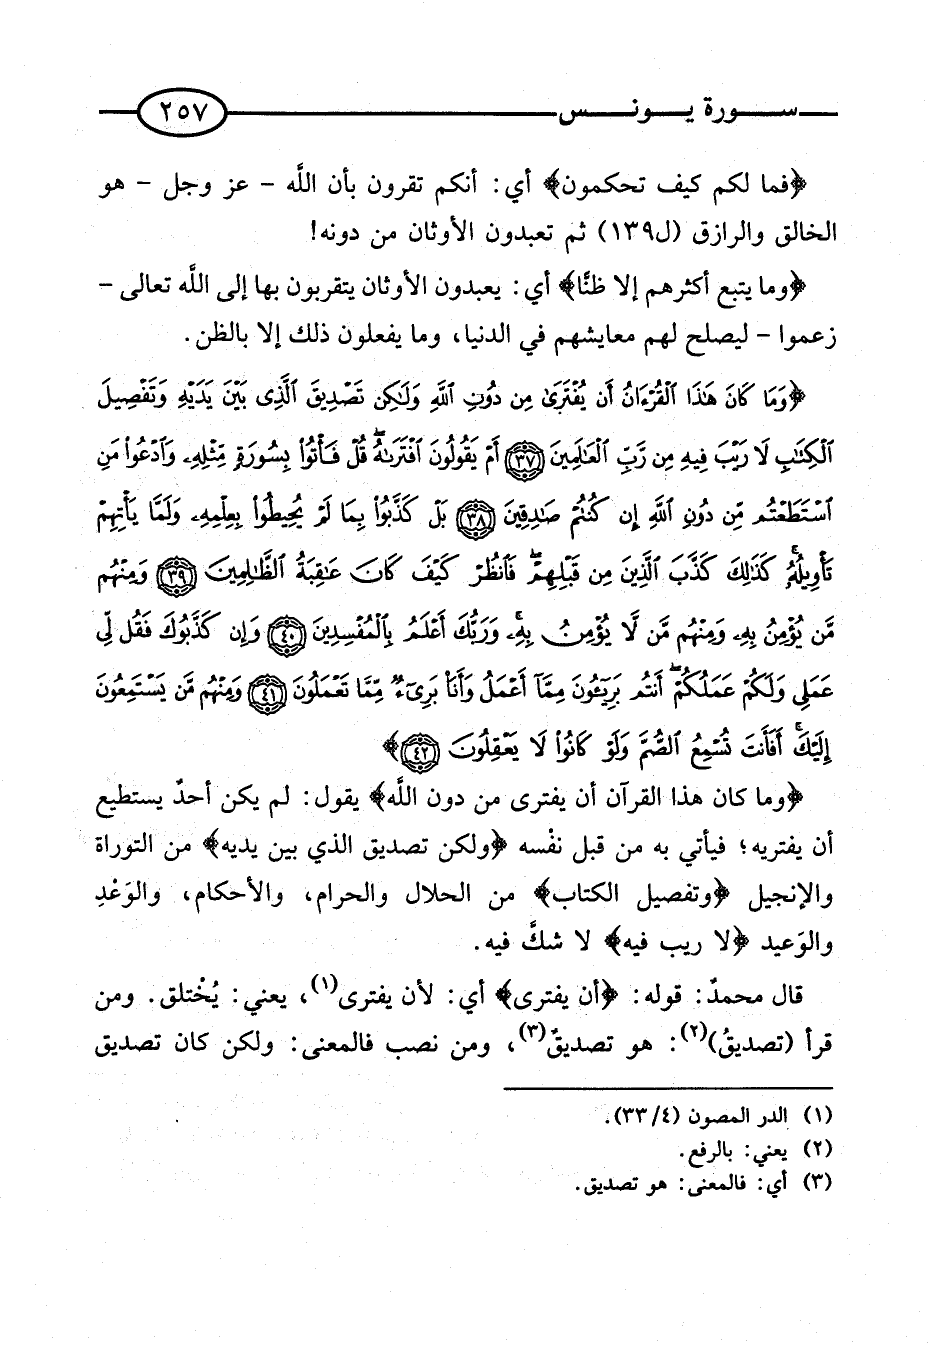 سورة يونس ٢٥٧
﴿فما لكم كيف تحكمون﴾ أي: أنكم تقرون بأن اللَّه - عز وجل - هو
الخالق والرازق (ل١٣٩) ثم تعبدون الأوثان من دونه!
﴿وما يتبع أكثرهم إلا ظنًّا﴾ أي: يعبدون الأوثان يتقربون بها إلى اللَّه تعالى -
زعموا - ليصلح لهم معايشهم في الدنيا، وما يفعلون ذلك إلا بالظن.
﴿وَمَا كَانَ هَٰذَا ٱلْقُرْءَانُ أَن يُفْتَرَىٰ مِن دُونِ ٱللَّهِ وَلَٰكِن تَصْدِيقَ ٱلَّذِى بَيْنَ يَدَيْهِ وَتَفْصِيلَ
ٱلْكِتَٰبِ لَا رَيْبَ فِيهِ مِن رَّبِّ ٱلْعَٰلَمِينَ ٣٧ أَمْ يَقُولُونَ ٱفْتَرَىٰهُ ۖ قُلْ فَأْتُوا۟ بِسُورَةٍ مِّثْلِهِۦ وَٱدْعُوا۟ مَنِ
ٱسْتَطَعْتُم مِّن دُونِ ٱللَّهِ إِن كُنتُمْ صَٰدِقِينَ ٣٨ بَلْ كَذَّبُوا۟ بِمَا لَمْ يُحِيطُوا۟ بِعِلْمِهِۦ وَلَمَّا يَأْتِهِمْ
تَأْوِيلُهُۥ ۚ كَذَٰلِكَ كَذَّبَ ٱلَّذِينَ مِن قَبْلِهِمْ ۖ فَٱنظُرْ كَيْفَ كَانَ عَٰقِبَةُ ٱلظَّٰلِمِينَ ٣٩ وَمِنْهُم
مَّن يُؤْمِنُ بِهِۦ وَمِنْهُم مَّن لَّا يُؤْمِنُ بِهِۦ ۚ وَرَبُّكَ أَعْلَمُ بِٱلْمُفْسِدِينَ ٤٠ وَإِن كَذَّبُوكَ فَقُل لِّى
عَمَلِى وَلَكُمْ عَمَلُكُمْ ۖ أَنتُم بَرِيٓـُٔونَ مِمَّآ أَعْمَلُ وَأَنَا۠ بَرِىٓءٌ مِّمَّا تَعْمَلُونَ ٤١ وَمِنْهُم مَّن يَسْتَمِعُونَ
إِلَيْكَ ۚ أَفَأَنتَ تُسْمِعُ ٱلصُّمَّ وَلَوْ كَانُوا۟ لَا يَعْقِلُونَ ٤٢﴾
﴿وما كان هذا القرآن أن يفترى من دون اللَّه﴾ يقول: لم يكن أحدٌ يستطيع
أن يفتريه؛ فيأتي به من قبل نفْسه ﴿ولكن تصديق الذي بين يديه﴾ من التوراة
والإنجيل ﴿وتفصيل الكتاب﴾ من الحلال والحرام، والأحكام، والوَعْدِ
والوَعيد ﴿لا ريب فيه﴾ لا شكَّ فيه.
قال محمدٌ: قوله: ﴿أن يفترى﴾ أي: لأن يفترى(١)، يعني: يُخْتلق. ومن
قرأ (تصديقُ)(٢): هو تصديقٌ(٣)، ومن نصب فالمعنى: ولكن كان تصديق
(١) الدر المصون (٤/ ٣٣).
(٢) يعني: بالرفع.
(٣) أي: فالمعنى: هو تصديق.